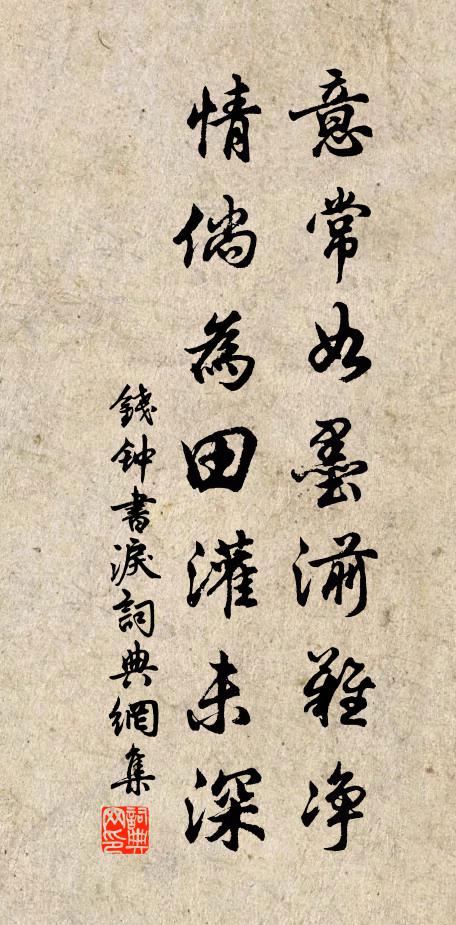 意常如墨湔難净
情倘為田灌未深
錢鍾書淚詞典網集
詞典網印